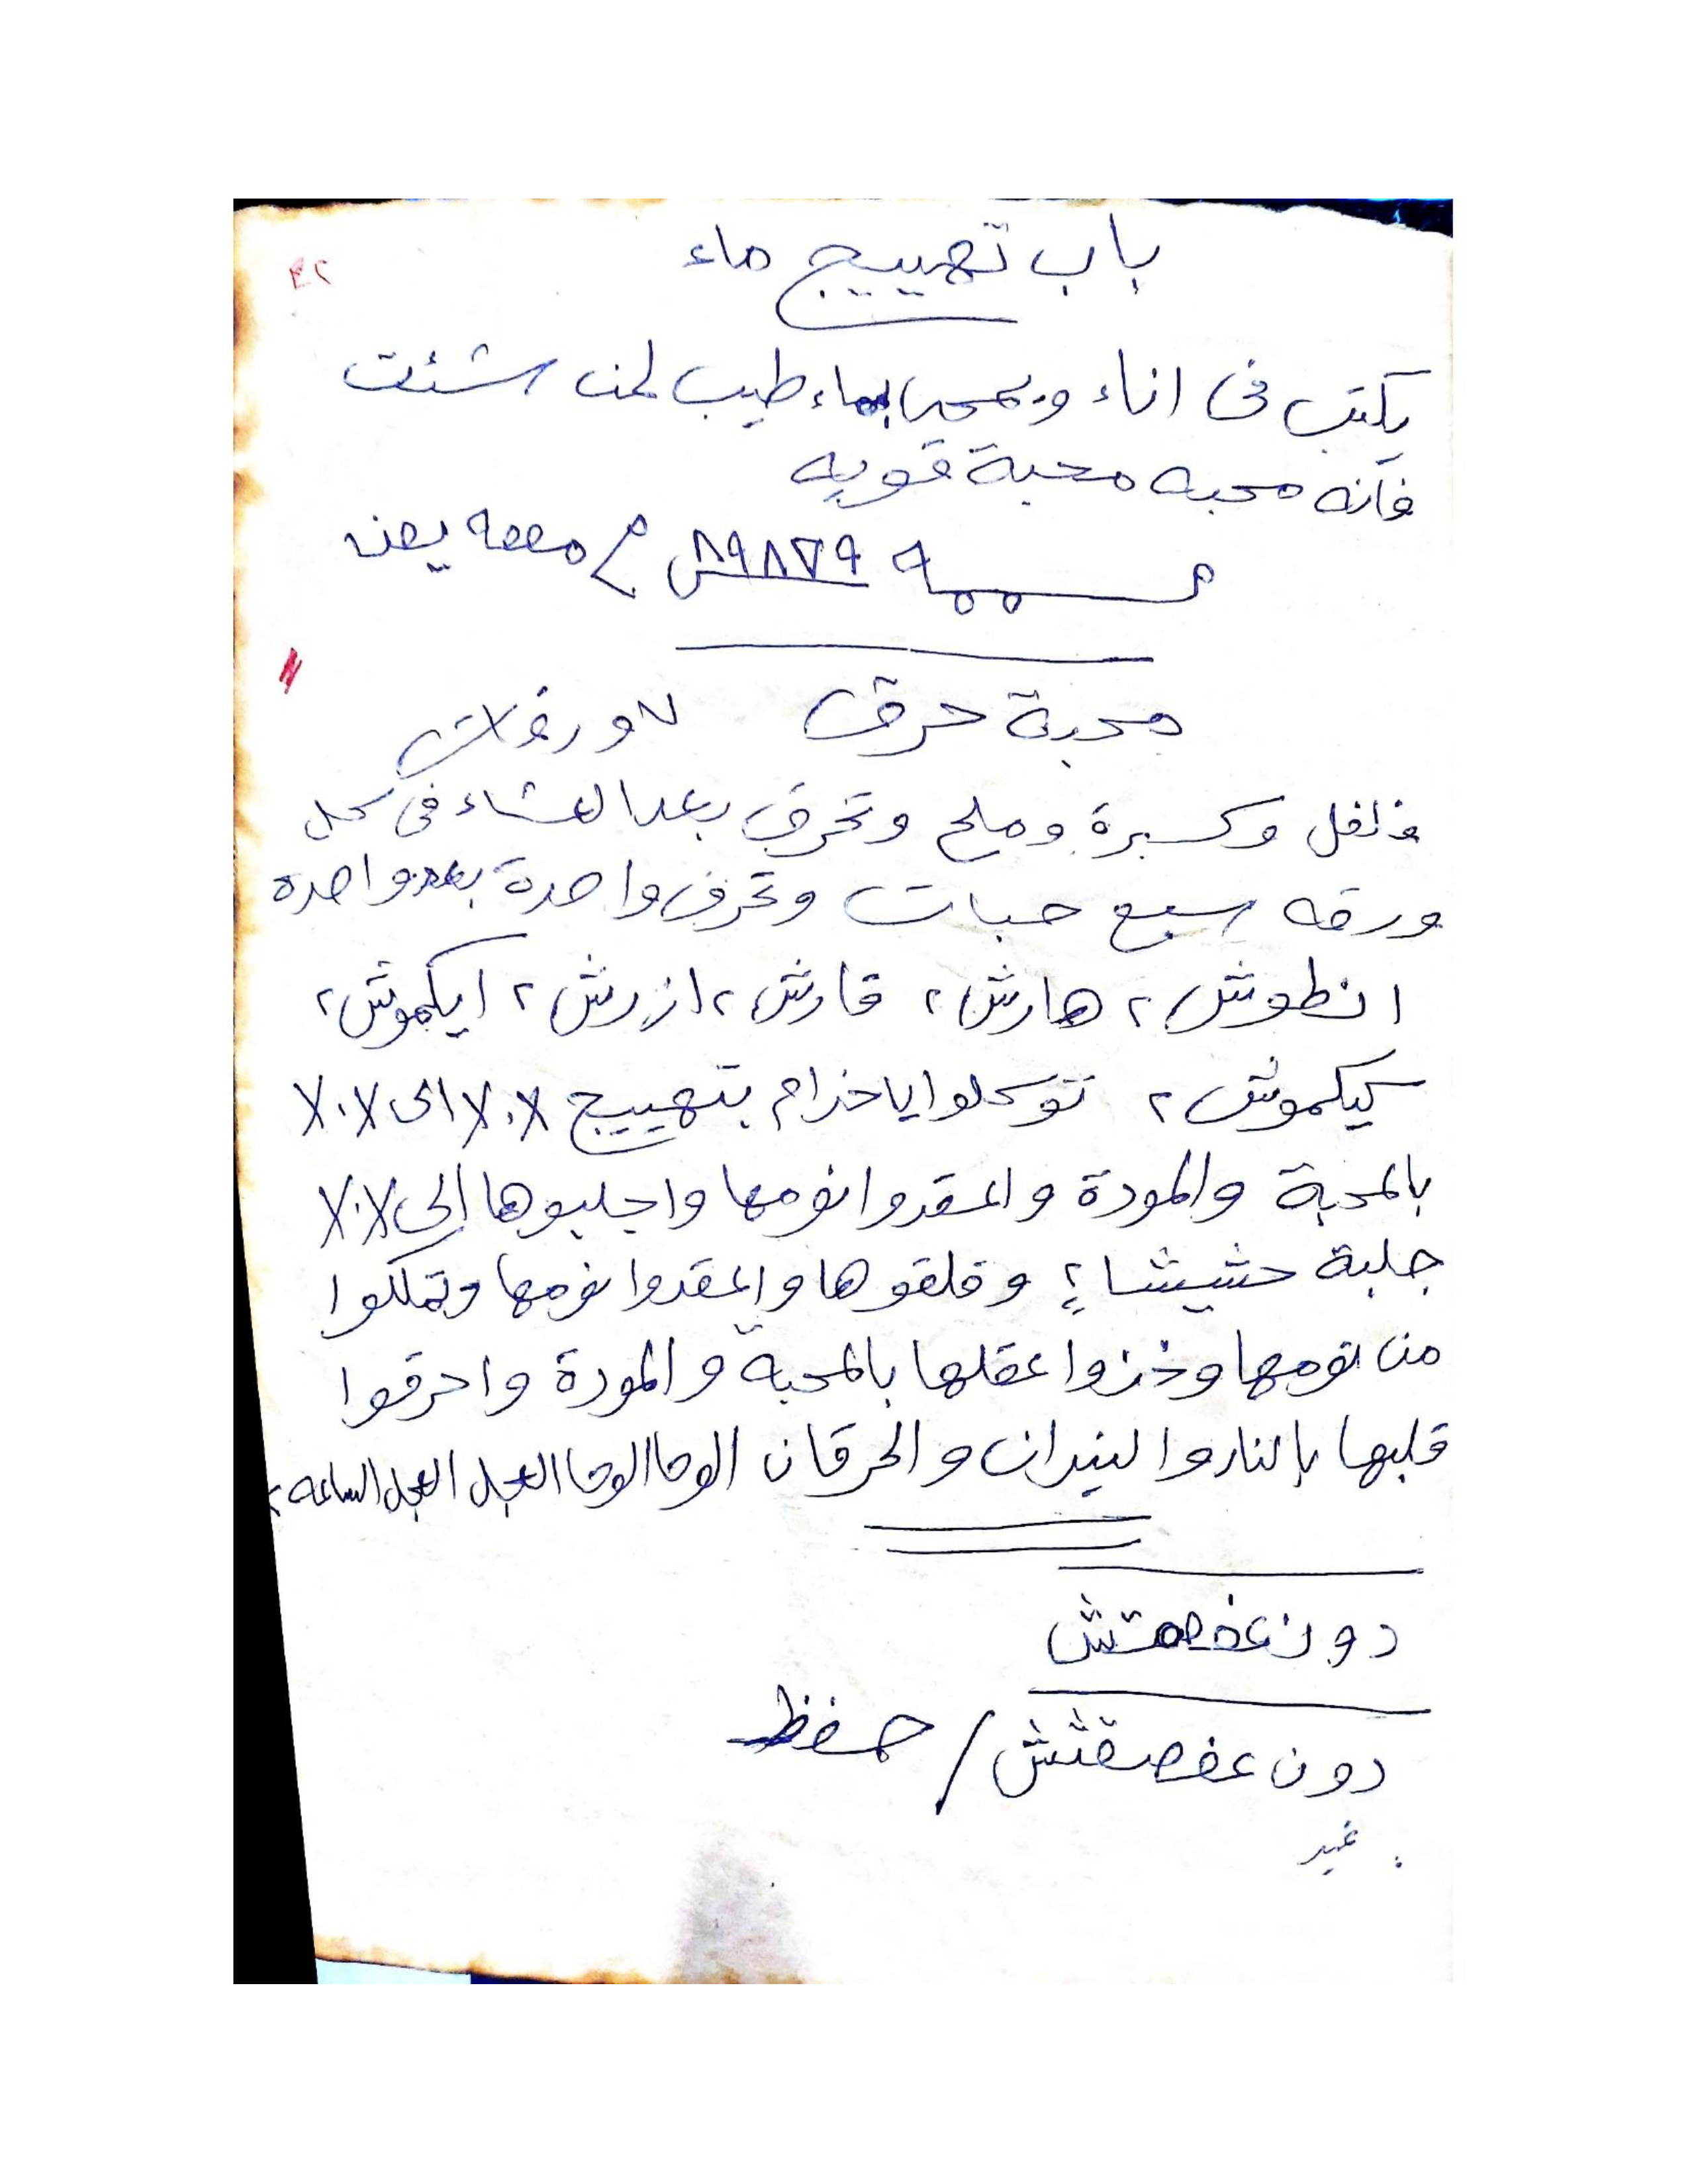 باب تهييج ماء
يكتب فى اناء ويمحى بماء طيب لمن شئت
فانه محبه محبة قويه
محبة حرق ٧ ورقات
فلفل وكسبرة وملح وتحرق بعد العشاء فى كل
ورقه سبع حبات وتحرق واحدة بعد واحده
انطوش ٢ هارش ٢ قارش ٢ ازرش ٢ ايكموش ٢
كيكموش ٢ توكلوا يا خدام بتهييج
بالمحبة والمودة واعقدوا نومها واجلبوها الى
جلبة حشيشا ؟ وقلقوها واعقدوا نومها وتملكوا
من نومها وخذوا عقلها بالمحبة والمودة واحرقوا
قلبها بالنار والنيران والحرقان الوحا الوحا العجل العجل الساعه ٢
دون عفصقتش / حفظ
غير